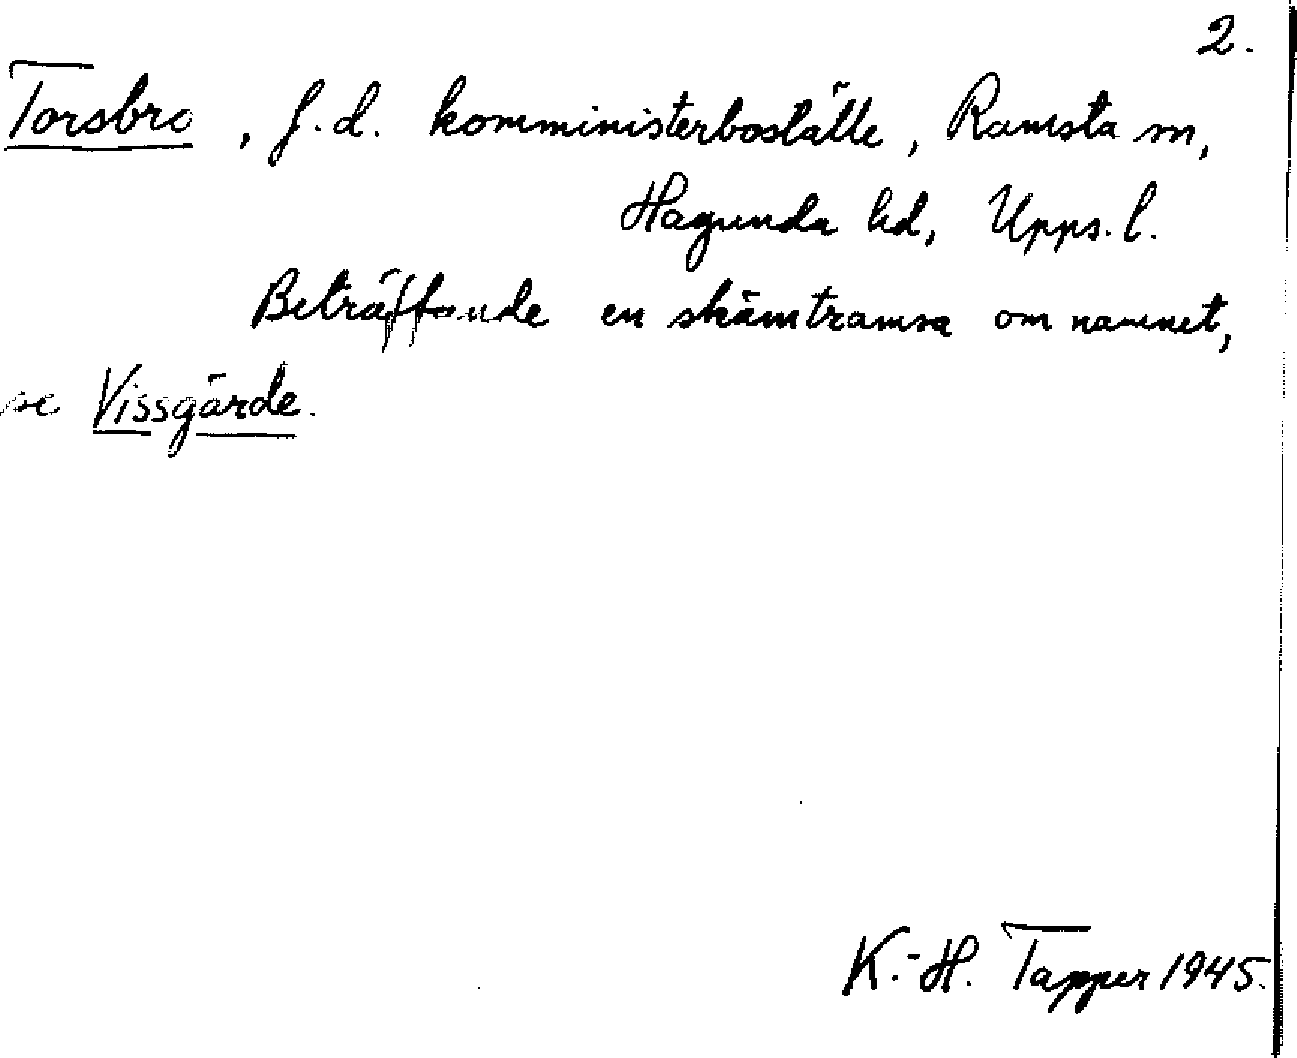 2.
Torsbro, f.d. komministerboställe, Ramsta sn,
Hagunda hd, Upps. l.
Beträffande en skämtramsa om namnet,
se Vissgärde.
K.-H. Tapper 1945.